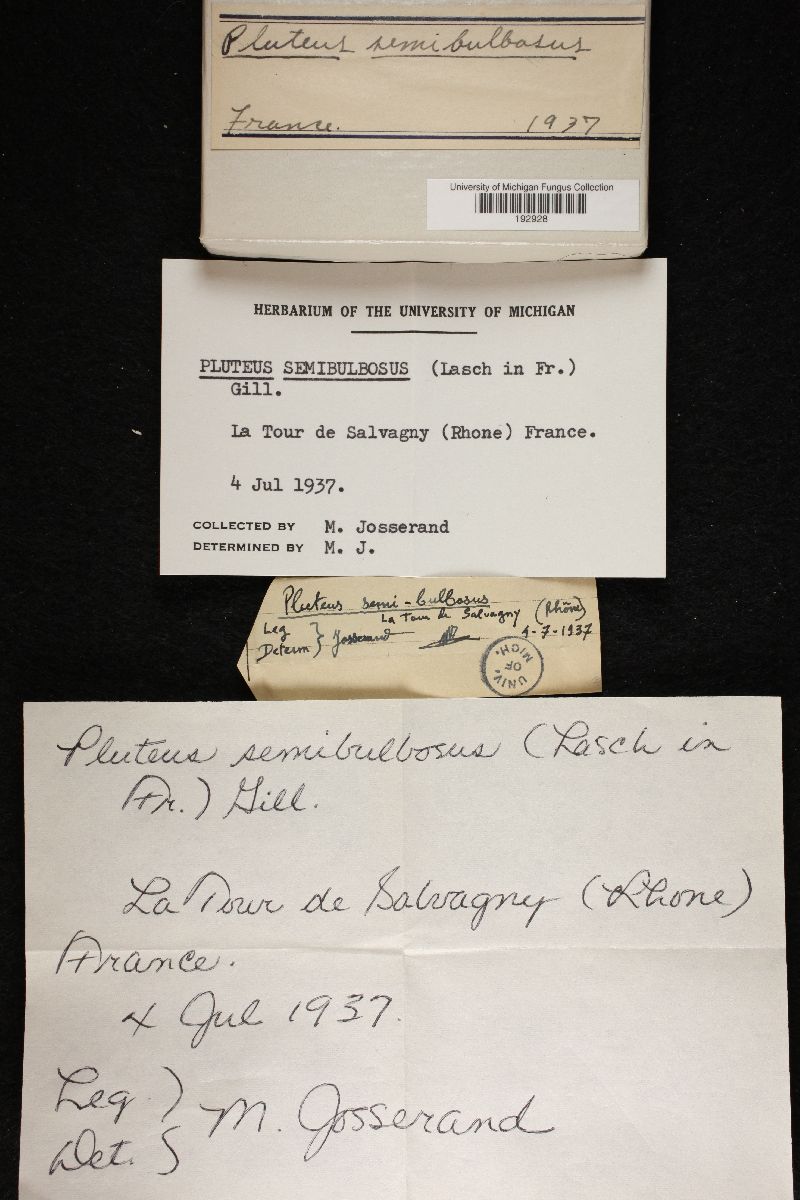 Pluteus semibulbosus
France. 1937
University of Michigan Fungus Collection
192928
HERBARIUM OF THE UNIVERSITY OF MICHIGAN
PLUTEUS SEMIBULBOSUS (Lasch in Fr.)
Gill.
La Tour de Salvagny (Rhone) France.
4 Jul 1937.
COLLECTED BY M. Josserand
DETERMINED BY M. J.
Pluteus semi-bulbosus
La Tour de Salvagny (Rhône)
Leg } Josserand 4-7-1937
Determ
UNIV. OF MICH.
Pluteus semibulbosus (Lasch in
Fr.) Gill.
La Tour de Salvagny (Rhone)
France.
4 Jul 1937.
Leg. } M. Josserand
Det.